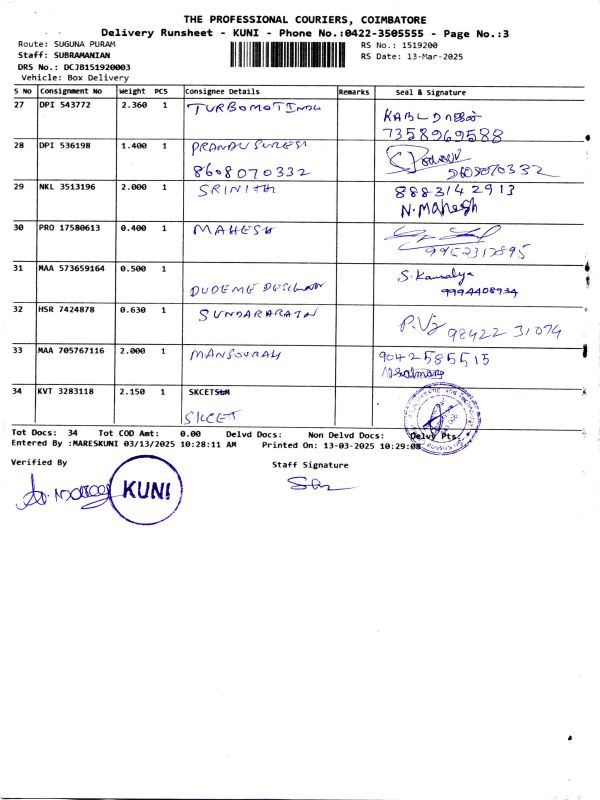 THE PROFESSIONAL COURIERS, COIMBATORE
Delivery Runsheet - KUNI - Phone No.:0422-3505555 - Page No.:3
Route: SUGUNA PURAM
RS No.: 1519200
Staff: SUBRAMANIAN
RS Date: 13-Mar-2025
DRS No.: DCJB151920003
Vehicle: Box Delivery
S No Consignment No Weight PCS Consignee Details Remarks Seal & Signature
27 DPI 543772 2.360 1
7358969588
28 DPI 536198 1.400 1
8608070332 8608070332
29 NKL 3513196 2.000 1 SRINITH 8883142913
N. Mahesh
30 PRO 17580613 0.400 1 MAHESH
31 MAA 573659164 0.500 1 S. Kamalya
9994408934
32 HSR 7424878 0.630 1 SUNDARARAJN
98422 31074
33 MAA 705767116 2.000 1 MANSOURAH 9042585515
34 KVT 3283118 2.150 1 SKCETSLM
SKCET
Tot Docs: 34 Tot COD Amt: 0.00 Delvd Docs: Non Delvd Docs: Delvy Pts:
Entered By :MARESKUNI 03/13/2025 10:28:11 AM Printed On: 13-03-2025 10:29:08
Verified By
Staff Signature
KUNI